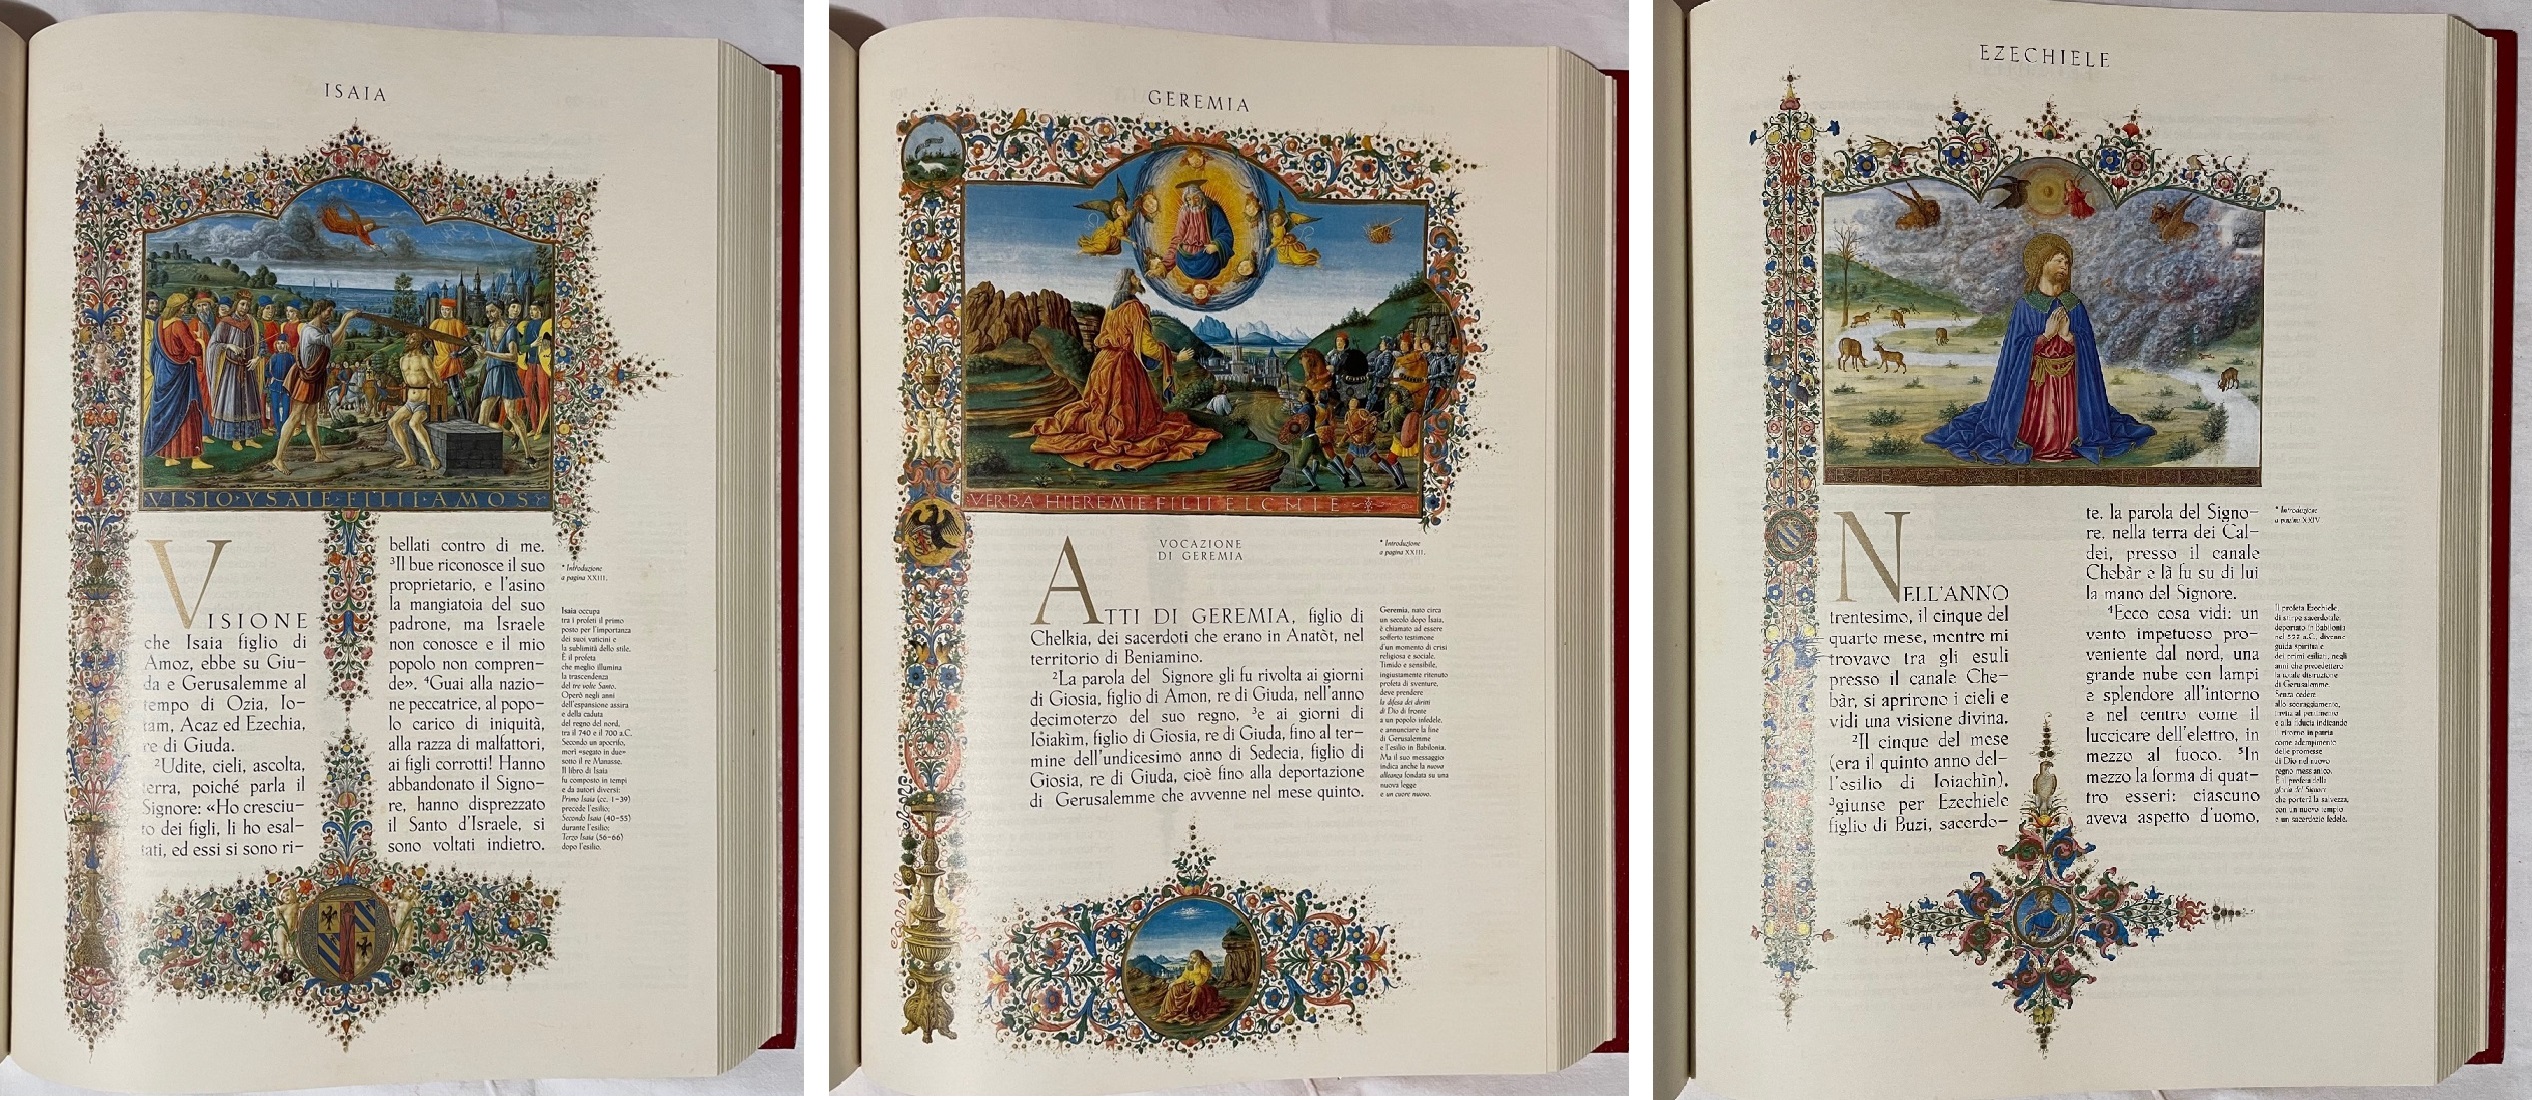 ISAIA
VISIO·YSAIE·FILII·AMOS
VISIONE
che Isaia figlio di
Amoz, ebbe su Giu-
da e Gerusalemme al
tempo di Ozia, Io-
tam, Acaz ed Ezechia,
re di Giuda.
²Udite, cieli, ascolta,
terra, poiché parla il
Signore: «Ho cresciu-
to dei figli, li ho esal-
tati, ed essi si sono ri-
bellati contro di me.
³Il bue riconosce il suo
proprietario, e l'asino
la mangiatoia del suo
padrone, ma Israele
non conosce e il mio
popolo non compren-
de». ⁴Guai alla nazio-
ne peccatrice, al popo-
lo carico di iniquità,
alla razza di malfattori,
ai figli corrotti! Hanno
abbandonato il Signo-
re, hanno disprezzato
il Santo d'Israele, si
sono voltati indietro.
* Introduzione
a pagina XXIII.
Isaia occupa
tra i profeti il primo
posto per l'importanza
dei suoi vaticini e
la sublimità dello stile.
È il profeta
che meglio illumina
la trascendenza
del tre volte Santo.
Operò negli anni
dell'espansione assira
e della caduta
del regno del nord,
tra il 740 e il 700 a.C.
Secondo un apocrifo,
morì «segato in due»
sotto il re Manasse.
Il libro di Isaia
fu composto in tempi
e da autori diversi:
Primo Isaia (cc. 1-39)
precede l'esilio;
Secondo Isaia (40-55)
durante l'esilio;
Terzo Isaia (56-66)
dopo l'esilio.
GEREMIA
VERBA HIEREMIE FILII ELCHIE
VOCAZIONE
DI GEREMIA
ATTI DI GEREMIA, figlio di
Chelkia, dei sacerdoti che erano in Anatòt, nel
territorio di Beniamino.
²La parola del Signore gli fu rivolta ai giorni
di Giosia, figlio di Amon, re di Giuda, nell'anno
decimoterzo del suo regno, ³e ai giorni di
Ioiakìm, figlio di Giosia, re di Giuda, fino al ter-
mine dell'undicesimo anno di Sedecia, figlio di
Giosia, re di Giuda, cioè fino alla deportazione
di Gerusalemme che avvenne nel mese quinto.
* Introduzione
a pagina XXIII.
Geremia, nato circa
un secolo dopo Isaia,
è chiamato ad essere
sofferto testimone
d'un momento di crisi
religiosa e sociale.
Timido e sensibile,
ingiustamente ritenuto
profeta di sventure,
deve prendere
la difesa dei diritti
di Dio di fronte
a un popolo infedele,
e annunciare la fine
di Gerusalemme
e l'esilio in Babilonia.
Ma il suo messaggio
indica anche la nuova
alleanza fondata su una
nuova legge
e un cuore nuovo.
EZECHIELE
NELL'ANNO
trentesimo, il cinque del
quarto mese, mentre mi
trovavo tra gli esuli
presso il canale Che-
bàr, si aprirono i cieli e
vidi una visione divina.
²Il cinque del mese
(era il quinto anno del-
l'esilio di Ioiachìn),
³giunse per Ezechiele
figlio di Buzi, sacerdo-
te, la parola del Signo-
re, nella terra dei Cal-
dei, presso il canale
Chebàr e là fu su di lui
la mano del Signore.
⁴Ecco cosa vidi: un
vento impetuoso pro-
veniente dal nord, una
grande nube con lampi
e splendore all'intorno
e nel centro come il
luccicare dell'elettro, in
mezzo al fuoco. ⁵In
mezzo la forma di quat-
tro esseri: ciascuno
aveva aspetto d'uomo,
* Introduzione
a pagina XXIV.
Il profeta Ezechiele,
di stirpe sacerdotale,
deportato in Babilonia
nel 597 a.C., divenne
guida spirituale
dei primi esiliati, negli
anni che precedettero
la totale distruzione
di Gerusalemme.
Senza cedere
allo scoraggiamento,
invita al pentimento
e alla fiducia indicando
il ritorno in patria
come adempimento
delle promesse
di Dio nel nuovo
regno messianico.
È il profeta della
gloria del Signore
che porterà la salvezza,
con un nuovo tempio
e un sacerdozio fedele.